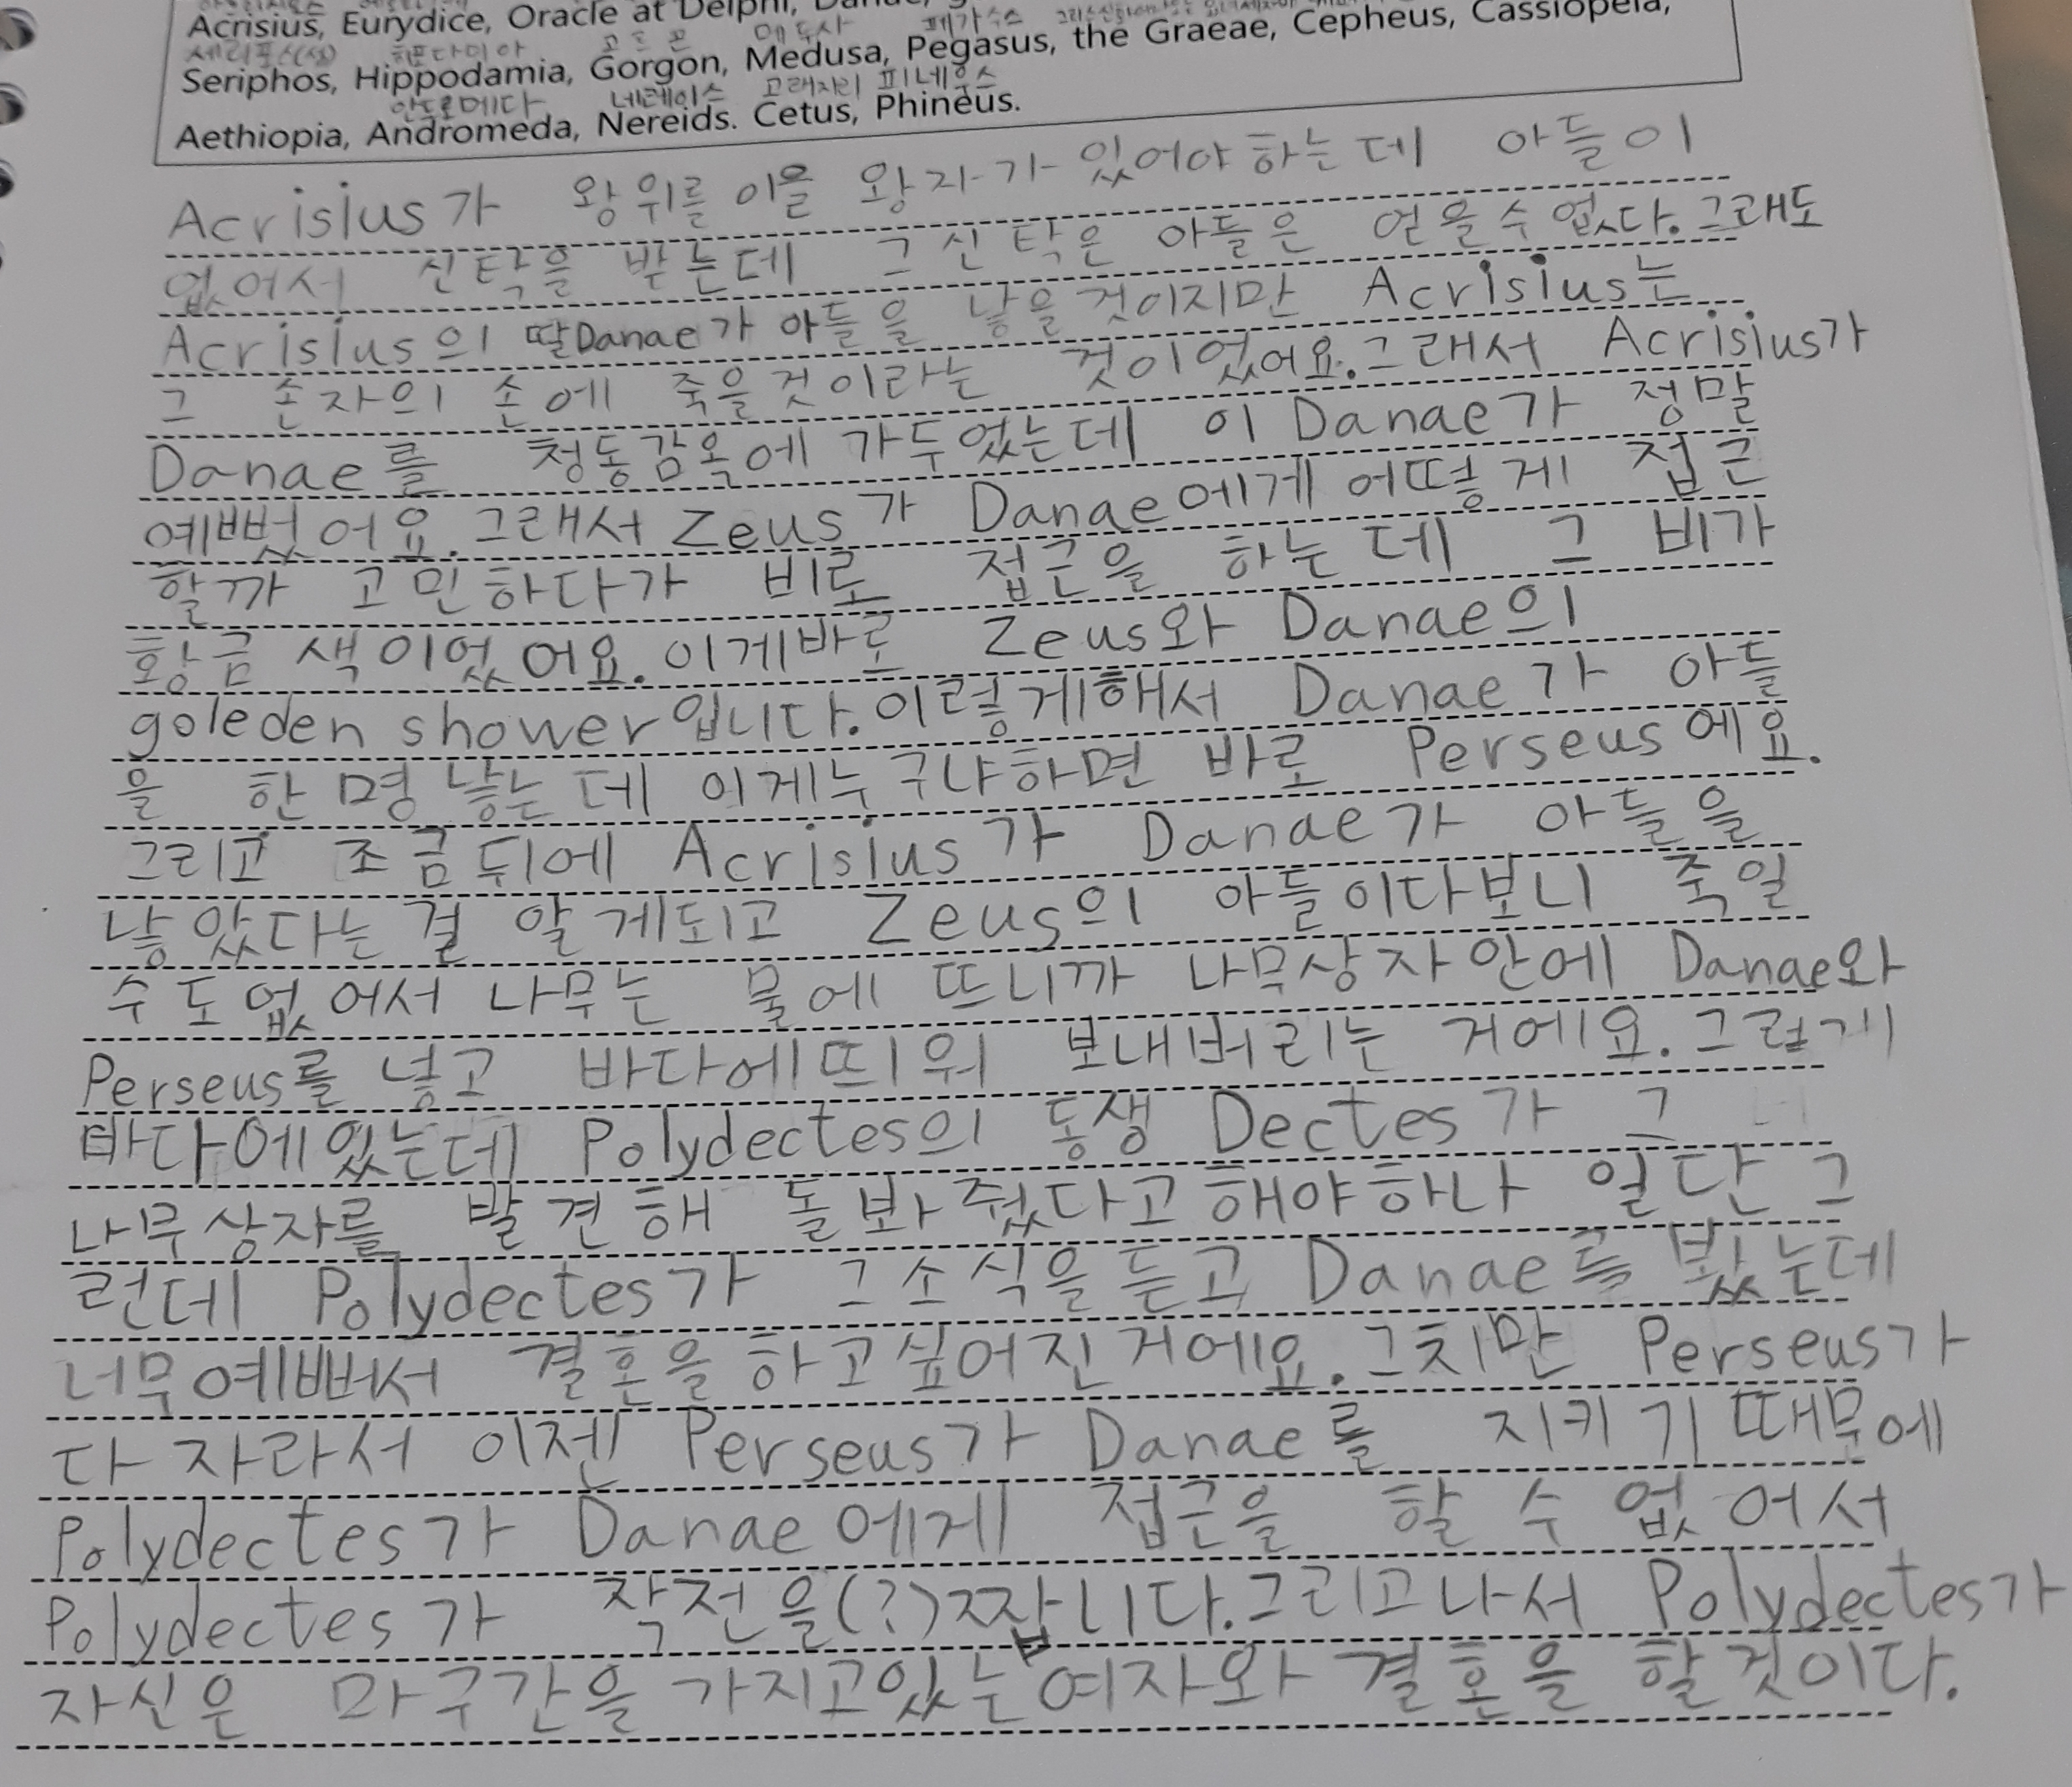 Acrisius, Eurydice, Oracle at Delphi,
세리포스(섬) 히포다미아 고르곤 메두사 페가수스
Seriphos, Hippodamia, Gorgon, Medusa, Pegasus, the Graeae, Cepheus, Cassiopeia,
안드로메다 네레이스 고래자리 피네우스
Aethiopia, Andromeda, Nereids. Cetus, Phineus.
Acrisius가 왕위를 이을 왕자가 있어야하는데 아들이
없어서 신탁을 받는데 그 신탁은 아들은 얻을수없다.그래도
Acrisius의 딸Danae가 아들을 낳을것이지만 Acrisius는
그 손자의 손에 죽을것이라는 것이었어요.그래서 Acrisius가
Danae를 청동감옥에 가두었는데 이 Danae가 정말
예뻤어요.그래서 Zeus가 Danae에게 어떻게 접근
할까 고민하다가 비로 접근을 하는데 그 비가
황금색이었어요.이게바로 Zeus와 Danae의
goleden shower입니다.이렇게해서 Danae가 아들
을 한명 낳는데 이게누구냐하면 바로 Perseus에요.
그리고 조금뒤에 Acrisius가 Danae가 아들을
낳았다는걸 알게되고 Zeus의 아들이다보니 죽일
수도없어서 나무는 물에 뜨니까 나무상자안에 Danae와
Perseus를 넣고 바다에띄워 보내버리는 거에요.그렇게
바다에있는데 Polydectes의 동생 Dectes가 그
나무상자를 발견해 돌봐줬다고해야하나 일단 그
런데 Polydectes가 그소식을듣고 Danae를 봤는데
너무예뻐서 결혼을하고싶어진거에요.그치만 Perseus가
다자라서 이젠 Perseus가 Danae를 지키기때문에
Polydectes가 Danae에게 접근을 할 수 없어서
Polydectes가 작전을(?)짭니다.그리고나서 Polydectes가
자신은 마구간을가지고있는여자와 결혼을 할것이다.